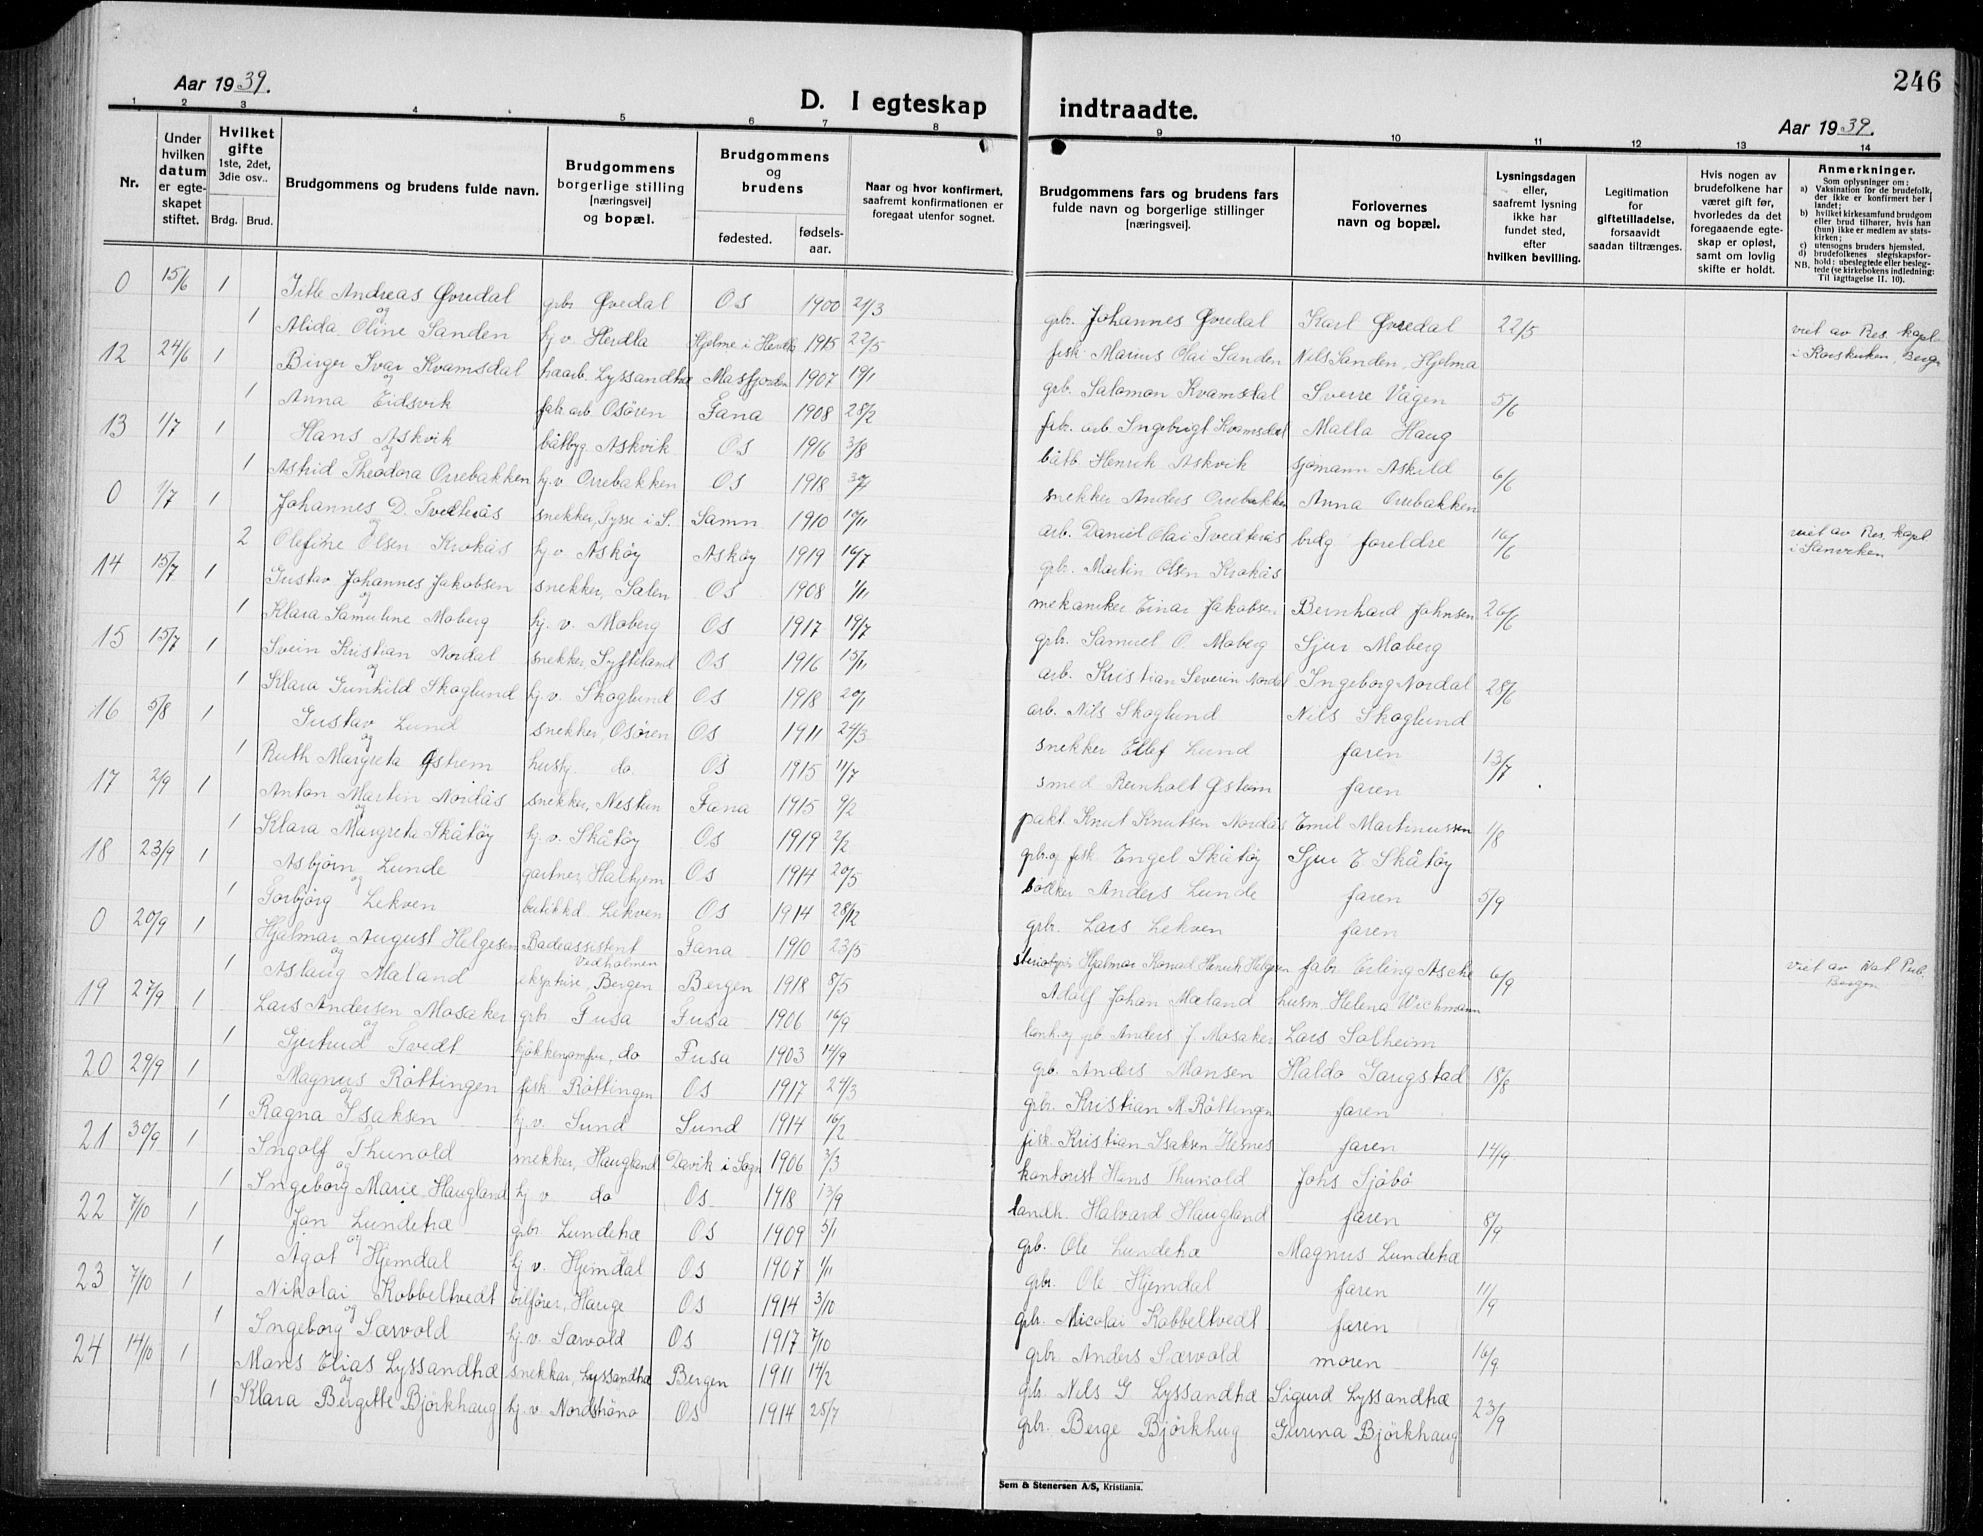 246
Aar 1939.
D. I egteskap indtraadte.
Aar 1939.
1 2 3 4 5 6 7 8 9 10 11 12 13 14
Nr.
Under hvilken datum er egteskapet stiftet.
Hvilket gifte 1ste, 2det, 3die osv..
Brdg. Brud.
Brudgommens og brudens fulde navn.
Brudgommens borgerlige stilling [næringsvei] og bopæl.
Brudgommens og brudens
fødested. fødselsaar.
Naar og hvor konfirmert, saafremt konfirmationen er foregaat utenfor sognet.
Brudgommens fars og brudens fars fulde navn og borgerlige stillinger [næringsvei].
Forlovernes navn og bopæl.
Lysningsdagen eller, saafremt lysning ikke har fundet sted, efter hvilken bevilling.
Legitimation for giftetilladelse, forsaavidt saadan tiltrænges.
Hvis nogen av brudefolkene har været gift før, hvorledes da det foregaaende egteskap er opløst, samt om lovlig skifte er holdt.
Anmerkninger.
Som oplysninger om:
a) Vaksination for de brudefolk, der ikke er konfirmert her i landet;
b) hvilket kirkesamfund brudgom eller brud tilhører, hvis han (hun) ikke er medlem av statskirken;
c) utensogns bruders hjemsted.
d) brudefolkenes slegtskapsforhold: ubeslegtede eller beslegtede (se kirkebokens indledning: Til iagttagelse II. 10).
NB.
0 15/6 1 Andreas Øvredal grbr Øvredal Os 1900 21/3 gbr. Johannes Øvredal Karl Øvredal 22/5
og
1 Alida Oline Sanden hj. v. Herdla Hjelme i Herdla 1915 22/5 fisk. Marius Olai Sanden Nils Sanden, Hjelma viet av Res. kapl. i Korskirken, Bergen
12 24/6 1 Birger Ivar Kvamsdal Lyssandhæ Masfjorden 1907 19/1 grb. Salamon Kvamsdal Sverre Vågen 5/6
og
1 Anna Eidsvik fabr arb. Osøren Fana 1908 28/2 fabr. arb Ingebrigt Kvamsdal Malla Haug
13 1/7 1 Hans Askvik båtbyg. Askvik Os 1916 3/8 båtb. Henrik Askvik sjømann Askild 6/6
og
1 Astrid Theodora Orrebakken hj. v Orrebakken Os 1918 snekker Anders Orrebakken Anna Orrebakken
0 1/7 1 Johannes D. Tvedterås snekker, Tysse i S. Samn 1910 10/11 arb. Daniel Olai Tvedterås brdg foreldre 16/6 viet av Res. kapl i
og
2 Olefine Olsen Krokås hj. v Askøy Askøy 1919 16/7 grb. Martin Olsen Krokås
14 15/7 1 Gustav Johannes Jakobsen snekker, Salen Os 1908 1/11 mekaniker Einar Jakobsen Bernhard Johnsen 26/6
og
1 Klara Samuline Moberg hj. v. Moberg Os 1917 19/7 gbr. Samuel O. Moberg Sjur Moberg
15 15/7 1 Svein Kristian Nordal snekker, Syfteland Os 1916 15/11 arb. Kristian Severin Nordal Ingeborg Nordal 28/6
og
1 Klara Gunhild Skoglund hj. v. Skoglund Os 1918 20/1 arb. Nils Skoglund Nils Skoglund
16 5/8 1 Gustav Lund snekker, Osøren Os 1911 24/3 snekker Ellef Lund faren 13/7
og
1 Ruth Margreta Østrem do. Os 1915 11/7 smed Reinholt Østrem faren
17 2/9 1 Anton Martin Nordås snekker, Nestun Fana 1915 9/2 pakt. Knut Knutsen Nordås Emil Martinussen 1/8
og
1 Klara Margreta Skåtøy hj. v. Skåtøy Os 1919 2/2 gbr. og fisk. Engel Skåtøy Sjur E Skåtøy
18 23/9 1 Asbjørn Lunde gartner, Halhjem Os 1914 20/5 bøkker Anders Lunde faren 5/9
og
1 Torbjørg Lekven butikkd. Lekven Os 1914 28/12 grbr. Lars Lekven faren
0 20/9 1 Hjalmar August Helgesen Badeassistent Vedholmen Fana 1910 23/5 Hjalmar Konrad Henrik Helgesen fabr. Erling Asche 6/9 viet av Not Pub. Bergen
og
1 Aslaug Mæland Bergen Bergen 1918 8/5 Adolf Johan Mæland husm. Helena Wichmann
19 27/9 1 Lars Andersen Mosaker grbr Fusa Fusa 1906 16/9 og grb Anders J. Mosaker Lars Solheim
og
1 Gjertrud Tvedt do Fusa 1903 14/9 grb. Anders Monsen Haldo Gaugstad 18/8
20 29/9 1 Magnus Røttingen fisk Røttingen Os 1917 24/3 grbr. Kristian M. Røttingen faren
og
1 Ragna Isaksen hj. v. Sund Sund 1914 16/2 fisk. Kristian Isaksen Hesnes faren 14/9
21 30/9 1 Ingolf Thunold snekker, Haugland Davik i Sogn 1906 3/3 kontorist Hans Thunold Johs Sjøbø
og
1 Ingeborg Marie Haugland hj v do Os 1918 13/9 landh. Halvard Haugland faren 8/9
22 7/10 1 Jon Lundehæ gbr Lundehæ Os 1909 5/1 grb. Ole Lundehæ Magnus Lundehæ
og
1 Agot Hjemdal hj v. Hjemdal Os 1907 1/11 grbr. Ole Hjemdal faren 11/9
23 7/10 1 Nikolai Kobbeltvedt bilfører, Hauge Os 1914 3/10 grb. Nicolai Kobbeltvedt faren
og
1 Ingeborg Særvold hj. v. Særvold Os 1917 7/10 grbr Anders Særvold moren 16/9
24 14/10 1 Mons Elias Lyssandhæ snekkar, Lyssandhæ Bergen 1911 14/2 grb. Nils G Lyssandhæ Sigurd Lyssandhæ 23/9
og
1 Klara Bergitte Bjørkhaug hj. v. Nordstrøno Os 1914 25/7 grbr. Berge Bjørkhug Gurina Bjørkhaug
Sem & Stenersen A/S, Kristiania.